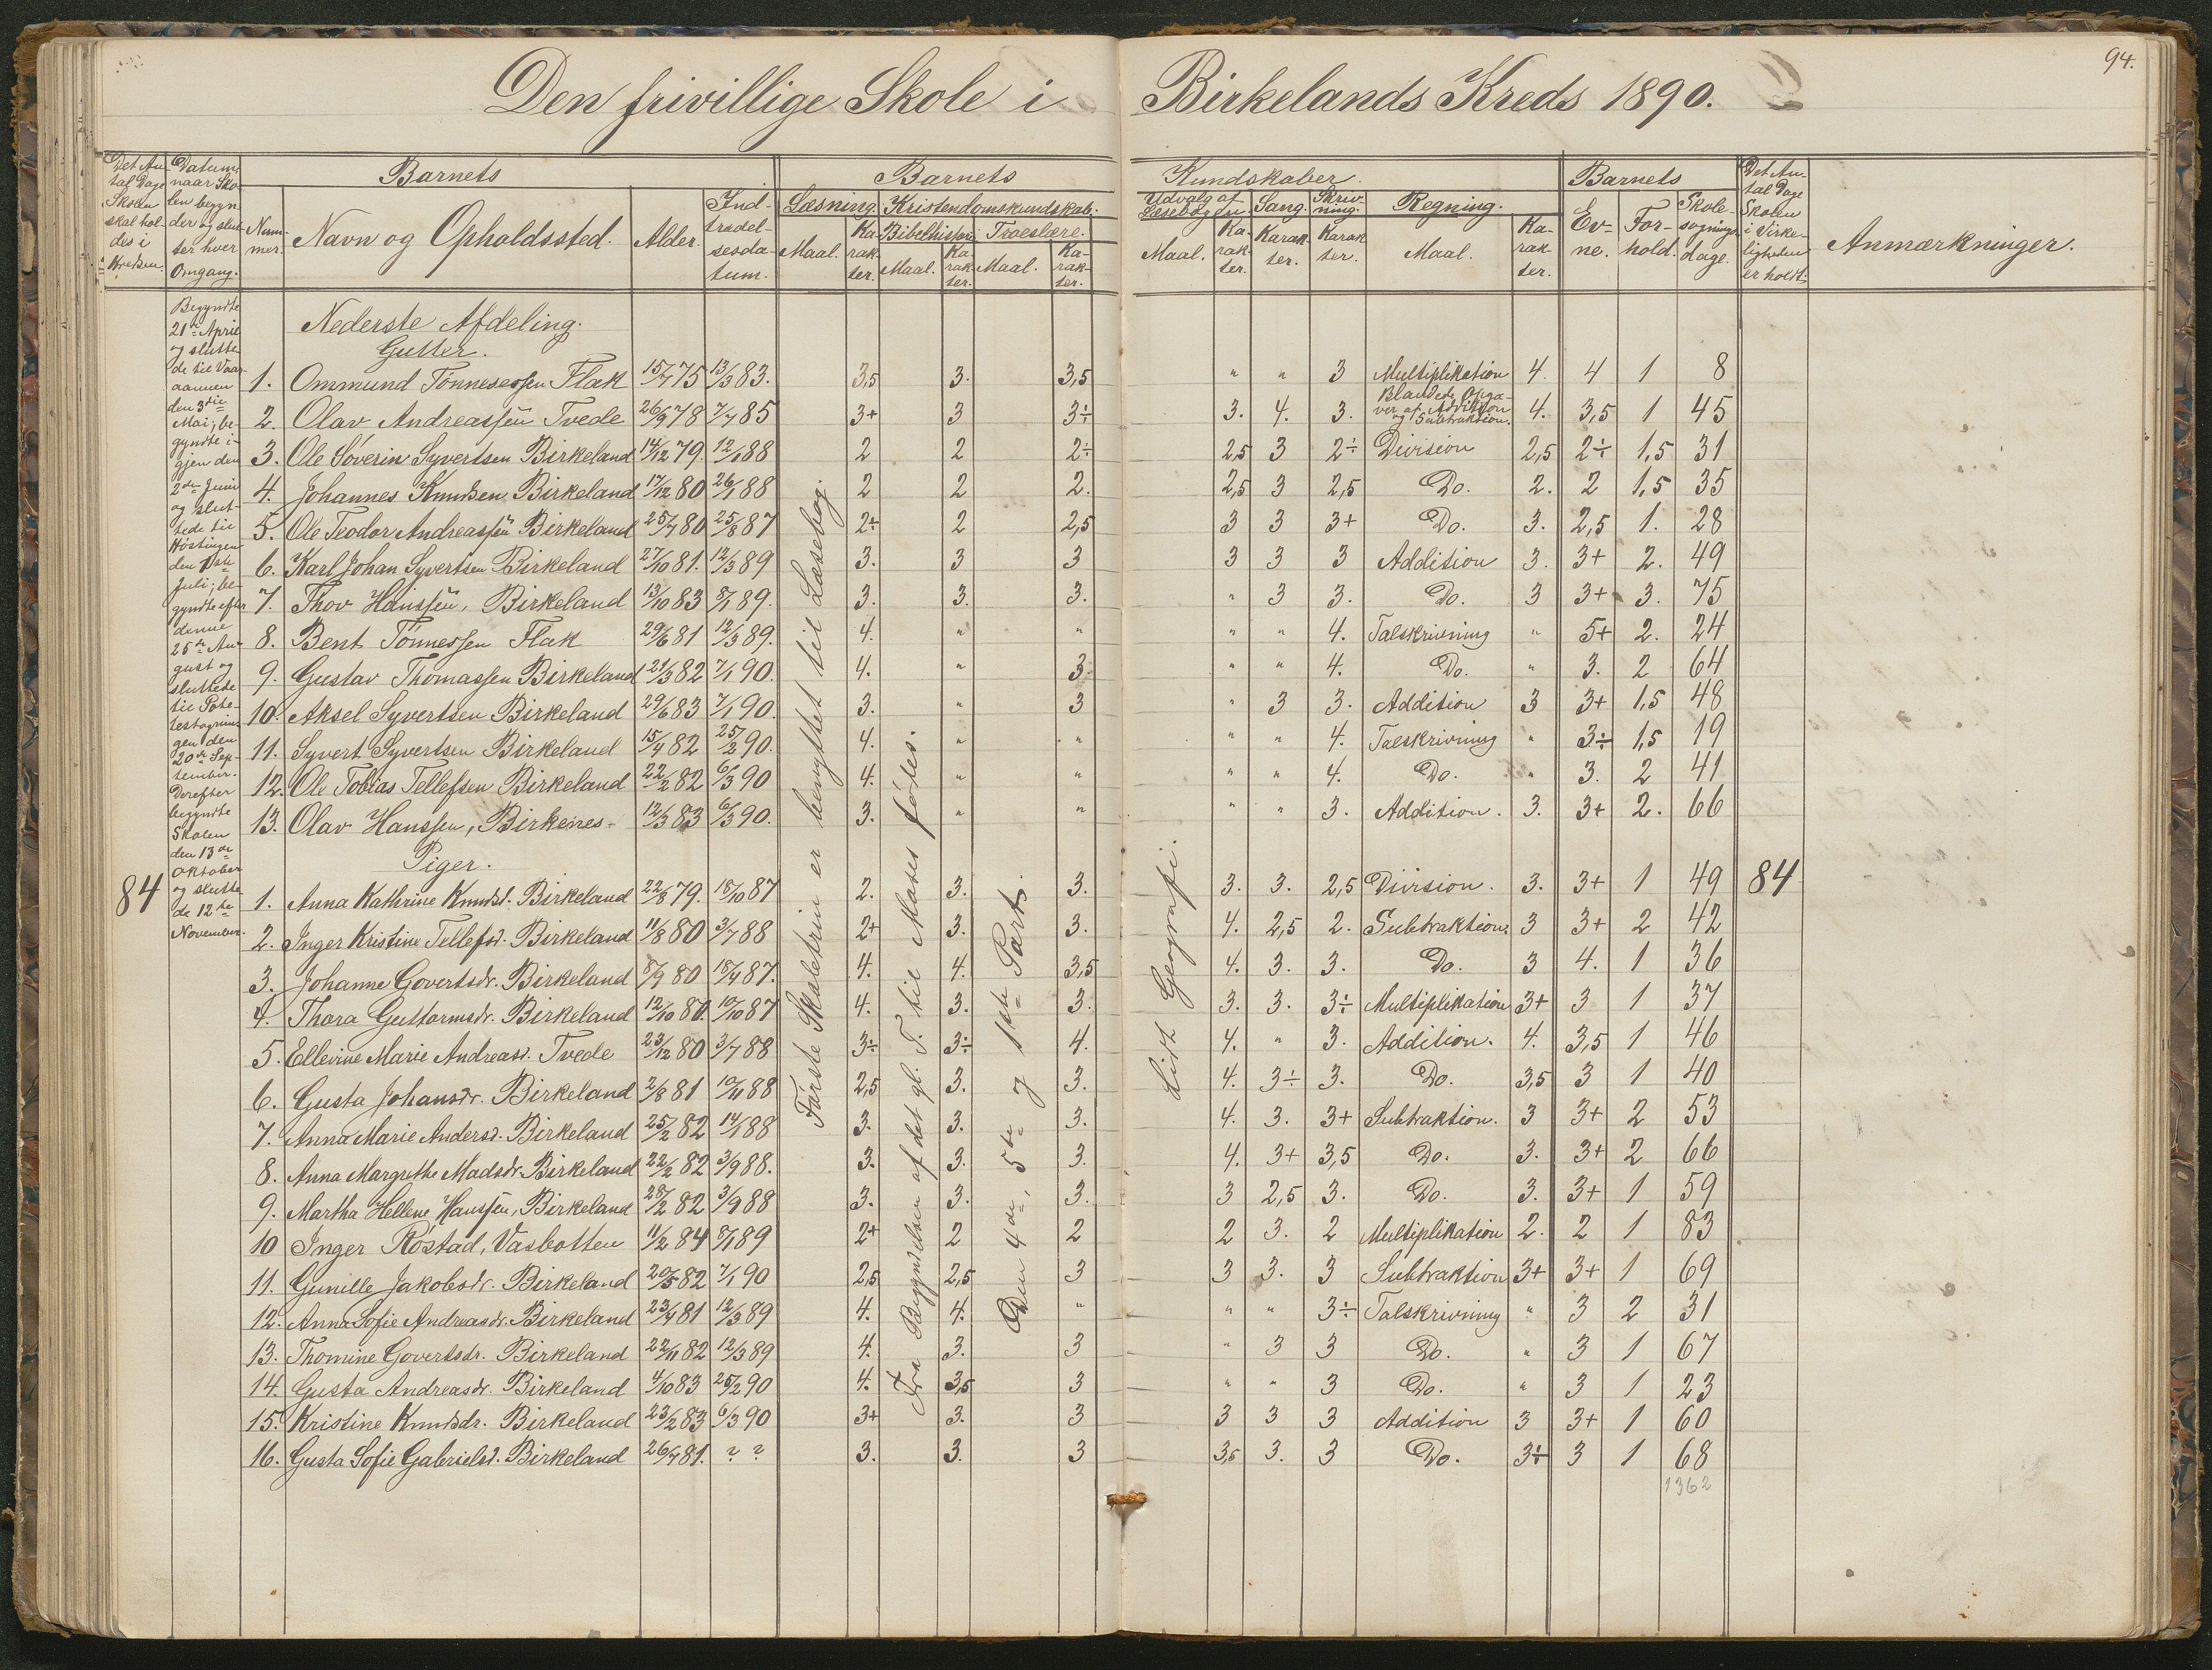 94.
Den frivillige Skole i Birkelands Kreds 1890.
Det An- tal Dage Skolen skal hol- des i Kredsen. | Datum, naar Sko- len begyn- der og slut- ter hver Omgang. | Barnets | Barnets Kundskaber. | Barnets | Det An- tal Dage Skolen i Virke- ligheden er holdt. | Anmærkninger.
Num- mer. | Navn og Opholdssted. | Alder. | Ind- trædel- sesda- tum. | Læsning. | Kristendomskundskab. | Udvalg af Læsebogen | Sang. | Skriv- ning. | Regning. | Ev- ne. | For- hold. | Skole- søgnings- dage.
Bibelhistorie | Troeslære.
Maal. | Ka- rak- ter. | Maal. | Ka- rak- ter. | Maal. | Ka- rak- ter. | Maal. | Ka- rak- ter. | Karak- ter. | Karak- ter. | Maal. | Ka- rak- ter.
Begyndte
21de April
og slutte
de til Vaar-
aannen
den 3die
Mai; be-
gyndte i-
gjen den
2den Juni
og slut-
tede til
Høstingen
den
Juli; be-
gyndte efter
denne
25de Au-
gust og
sluttede
til Pote-
testagnin-
gen den
20de Sep-
tember.
Derefter
begyndte
Skolen
den 13de
Oktober
og slutte
de 12te
November.
84
Nederste Afdeling.
Gutter.
1. Ommund Tönnesessen Flak 15/7 75 13/3 83. 3,5 3. 3,5 " " 3 Multiplikation 4. 4 1 8
2. Olav Andreassen Tvede 26/9 78 7/7 85 3+ 3 3÷ 3. 4. 3. Blandede Opga- ver af Addition og Subtraktion. 4. 3,5 1 45
3. Ole Söverin Syvertsen Birkeland 14/12 79. 12/1 88 2 2 2÷ 2,5 3 2÷ Division 2,5 2÷ 1,5 31
4. Johannes Knudsen Birkeland 17/12 80 26/1 88 2 2 2. 2,5 3 2,5 Do. 2. 2 1,5 35
5. Ole Teodor Andreassen Birkeland 25/7 80 25/8 87 2÷ 2 2,5 3 3 3+ Do. 3. 2,5 1. 28
6. Karl Johan Syvertsen Birkeland 27/10 81. 12/3 89 3. 3 3 3 3 3 Addition 3. 3+ 2. 49
7. Thov Hanssen, Birkeland 13/10 83 8/1 89. 3. 3. 3. " 3 3. Do. 3 3+ 3. 75
8. Bent Tönnessen Flak 29/6 81 12/3 89. 4. " " " " 4. Talskrivning " 5+ 2. 24
9. Gustav Thomassen Birkeland 21/3 82 7/1 90. 4. " 3. " " 4. Do. " 3. 2 64
10. Aksel Syvertsen Birkeland 29/6 83 7/1 90. 3. " 3 " 3 3. Addition 3 3+ 1,5 48
11. Syvert Syvertsen Birkeland 15/4 82 25/2 90. 4. " " " " 4. Talskrivning " 3÷ 1,5 19
12. Ole Tobias Tellefsen Birkeland 22/2 82 6/3 90 4. " " " " 4. Do. " 3. 2 41
13. Olav Hanssen, Birkenes- 12/3 83 6/3 90. 3. " " " " 3. Addition. 3. 3+ 2. 66
Piger.
1. Anna Kathrine Knudsd. Birkeland 22/8 79. 18/10 87 2. 3. 3. 3. 3. 2,5 Division. 3. 3+ 1 49 84
2. Inger Kristine Tellefsd. Birkeland 11/8 80 3/7 88 2+ 3. 3. 4. 2,5 2. Subtraktion. 3 3+ 2 42
3. Johanne Govertsdr. Birkeland 8/9 80 18/4 87. 4. 4. 3,5 4. 3. 3. Do. 3 4. 1 36
4. Thora Guttormsdr. Birkeland 12/10 80. 10/10 87 4. 3. 3. 3. 3. 3÷ Multiplikation 3+ 3 1 37
5. Ellevine Marie Andreasd. Tvede 23/12 80 3/7 88 3÷ 3÷ 4. 4. " 3. Addition. 4. 3,5 1 46
6. Gusta Johansdr. Birkeland 2/8 81 10/11 88 2,5 3. 3. 4. 3÷ 3. Do. 3,5 3 1 40
7. Anna Marie Andersd. Birkeland 25/2 82 14/1 88 3. 3. 3. 4. 3. 3+ Subtraktion. 3 3+ 2 53
8. Anna Margrethe Madsdr. Birkeland 22/2 82 3/9 88. 3. 3. 3. 4. 3+ 3,5 Do. 3. 3+ 2 66
9. Martha Hellene Hanssen, Birkeland 28/2 82 3/9 88 3. 3. 3. 3 2,5 3. Do. 3. 3+ 1 59
10 Inger Röstad, Vasbotten 11/2 84 8/1 89 2+ 2 2 2 3. 2 Multiplikation 2. 2 1 83
11. Gunille Jakobsdr. Birkeland 20/5 82 7/1 90 2,5 2,5 3 3 3. 3 Subtraktion 3+ 3+ 1 69
12. Anna Sofie Andreasdr. Birkeland 23/4 81 12/3 89 4. 4. " " " 3÷ Talskrivning " 3 2 31
13. Thomine Govertsdr. Birkeland 22/11 82 12/3 89 4. 3. 3 " 3 3 Do. " 3 1 67
14. Gusta Andreasdr. Birkeland 4/10 83 25/2 90 4. 3,5 3 " " 3 Do. " 3 1 23
15. Kristine Knudsdr. Birkeland 23/2 83 6/3 90 3+ 3. 3 3 3 3 Addition 3 3+ 1 60
16. Gusta Sofie Gabrielsd. Birkeland 26/7 81. ? ? 3. 3. 3 3,5 3. 3 Do. 3÷ 3 1 68
1362
Første Skoletrin er benyttet til Læsebog.
Fra Begyndelsen af det gl. T. til Moses fødes.
Den 4de, 5te og 1ste Part.
Lidt Geografi.